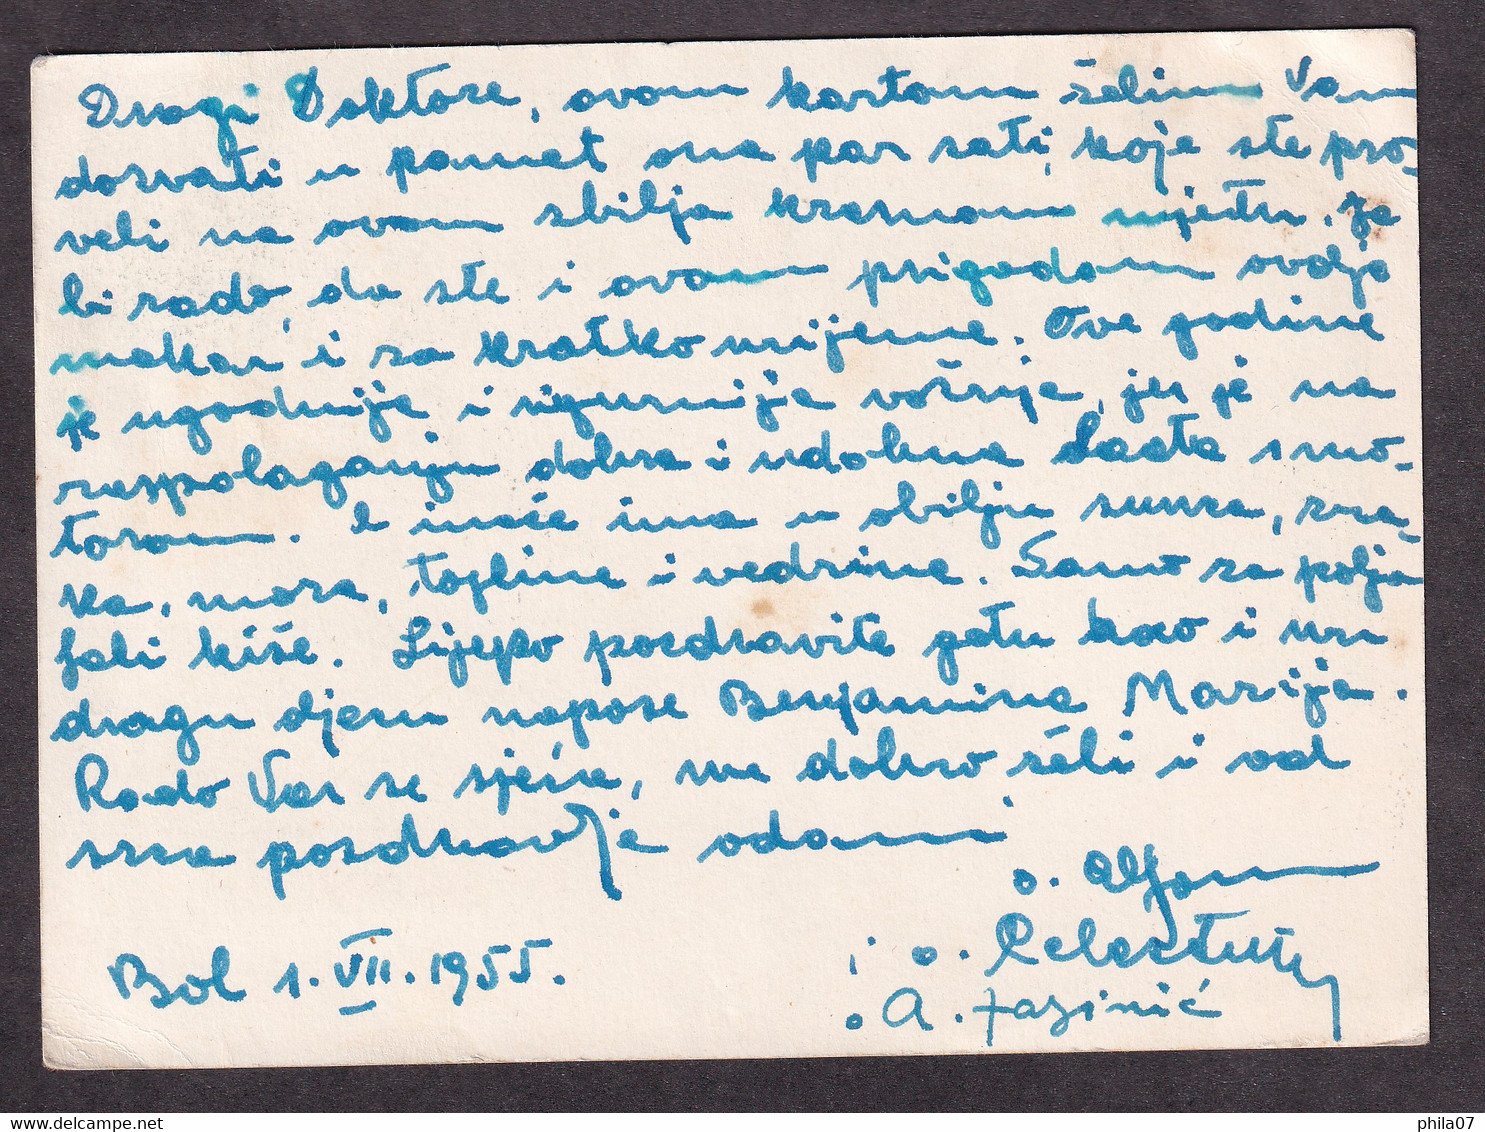 Dragi Doktore, ovom kartom želim Vam
dozvati u pamet ona par sati, koje ste pro-
veli na ovom zbilja krasnom mjestu. Ja
bi rado, da ste i ovom prigodom ovdje
makar i za kratko vrijeme. Ove godine
je ugodnije i sigurnije vožnje, jer je na
raspolaganju dobra i udobna barka s mo-
torom. I inače ima u obilju sunca, zra-
ka, mora, topline i vedrine. Samo za polja
fali kiše. Lijepo pozdravite gđu kao i svu
dragu djecu napose Benjamina Marija.
Rado Vas se sjeća, sve dobro želi i od
srca pozdravlja odani
o. Alfons
i o. Celestin
Bol 1. VII. 1955.
o A. Fazinić
phila07